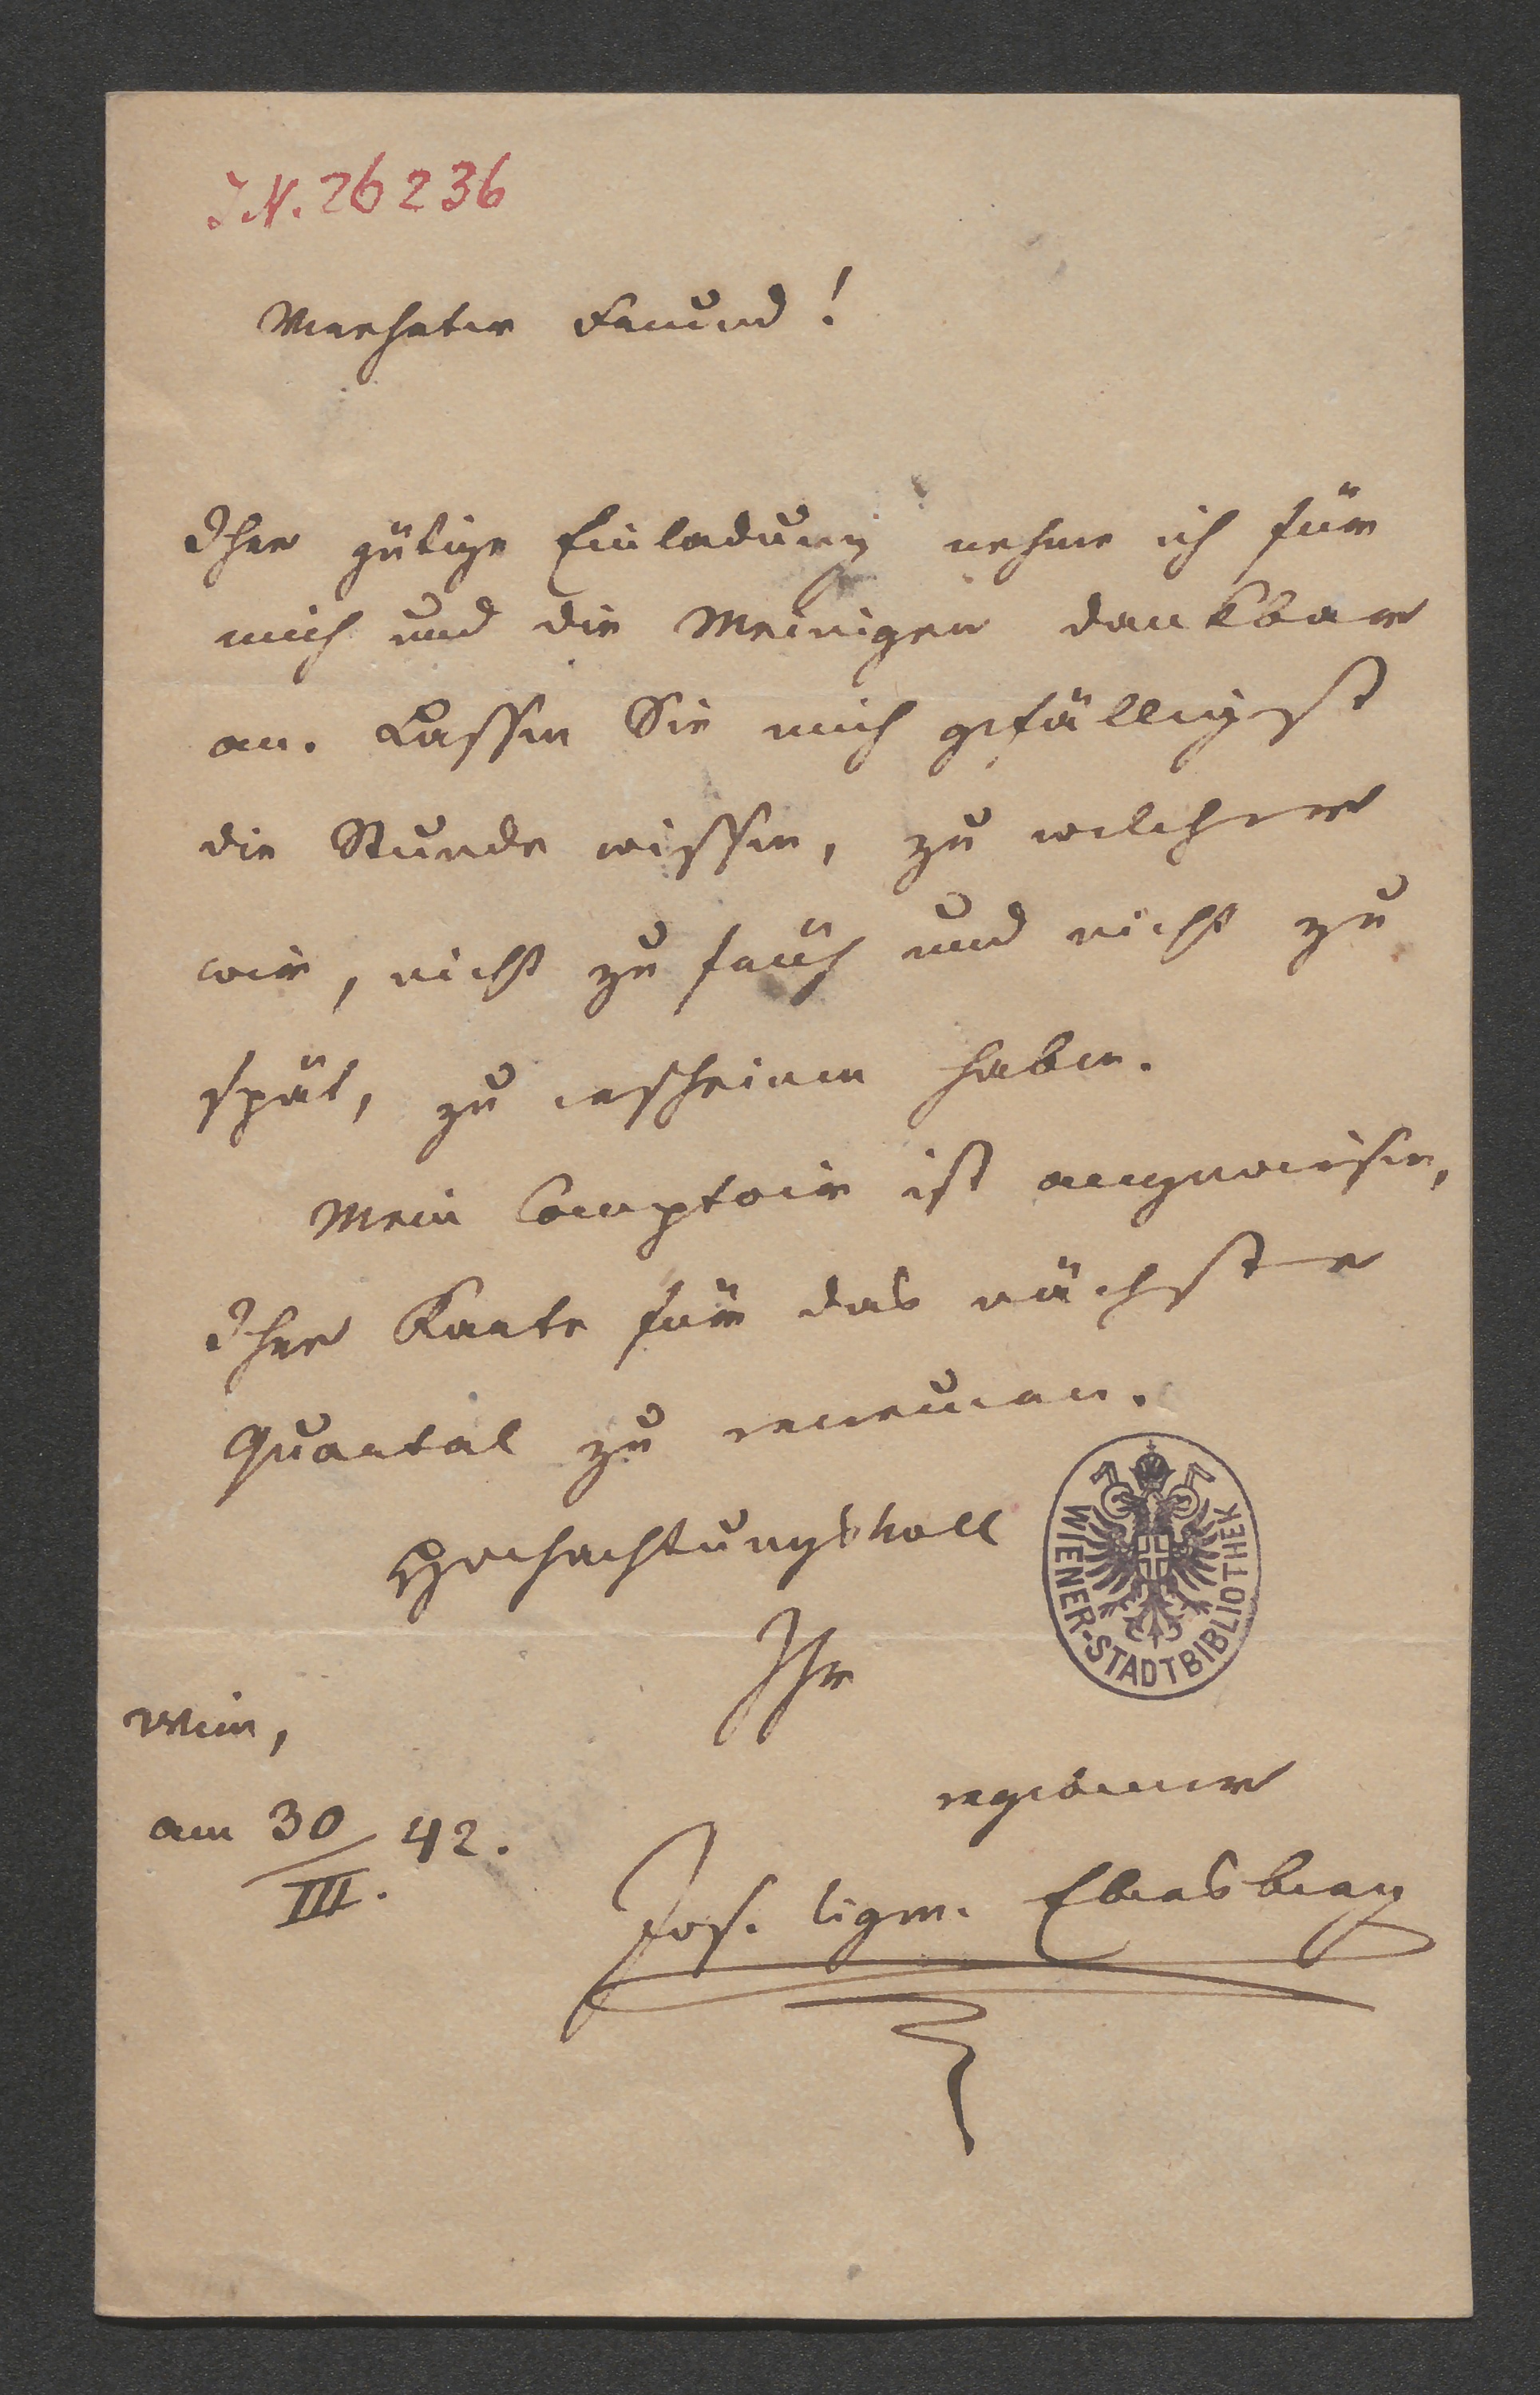 I.N. 26236
Verehrter Freund!
Ihre gütige Einladung nehme ich für
mich und die Meinigen dankbar
an. Lassen Sie mich gefälligst
die Stunde wissen, zu welcher
wir, nicht zu früh und nicht zu
spät, zu erscheinen haben.
Mein Comptoir ist angewiesen,
Ihre Karte für das nächste
Quartal zu erneuern.
Hochachtungsvoll
WIENER-STADTBIBLIOTHEK
Ihr
Wien,
ergebener
am 30/III. 42.
Jos. Sigm. Ebersberg